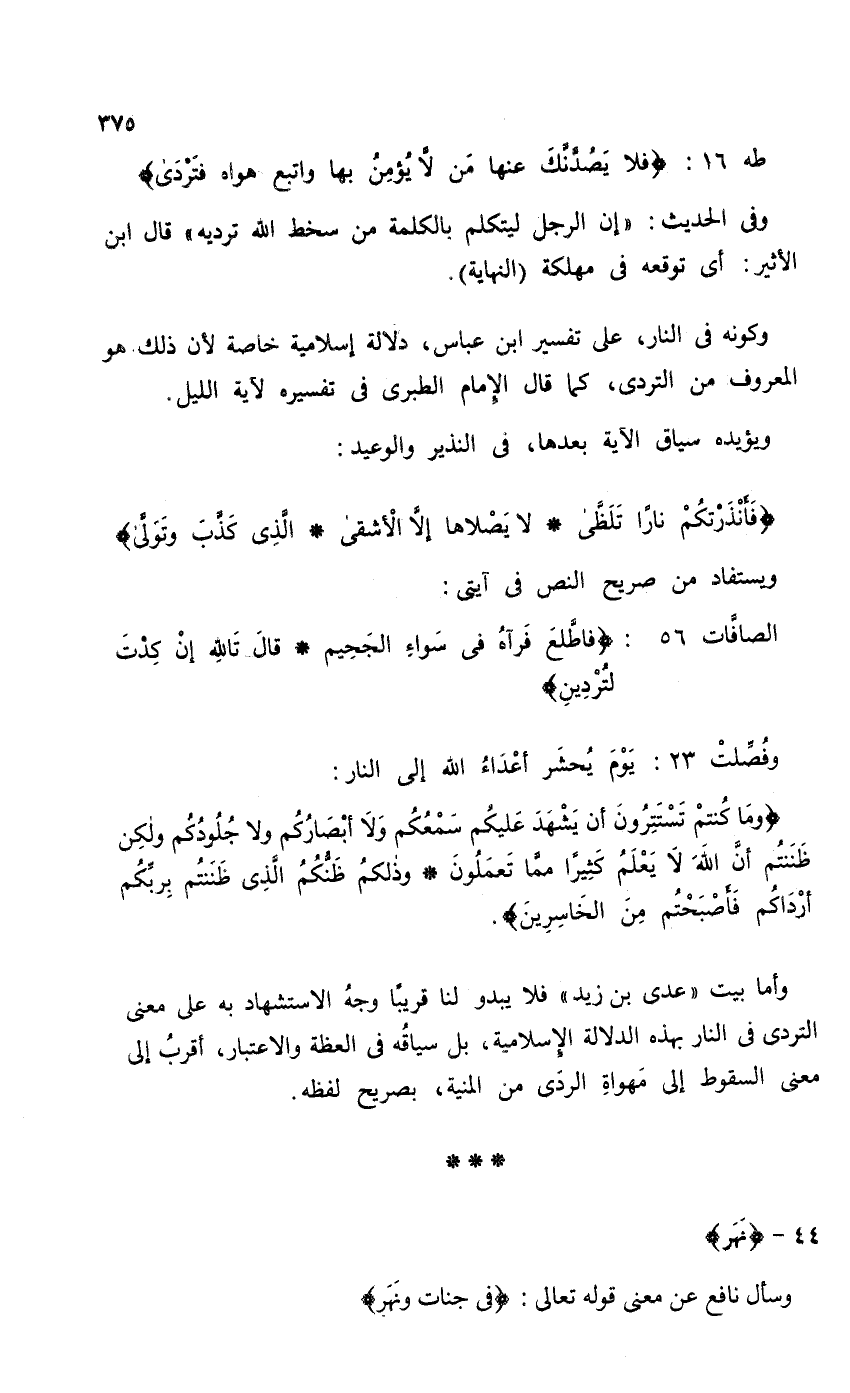 ٣٧٥
طه ١٦ : ﴿فلا يَصُدَّنَّكَ عنها مَن لَّا يُؤمِنُ بها واتبع هواه فتَرْدَىٰ﴾
وفى الحديث : «إن الرجل ليتكلم بالكلمة من سخط الله ترديه» قال ابن
الأثير : أى توقعه فى مهلكة (النهاية).
وكونه فى النار، على تفسير ابن عباس، دلالة إسلامية خاصة لأن ذلك هو
المعروف من التردى، كما قال الإمام الطبرى فى تفسيره لآية الليل.
ويؤيده سياق الآية بعدها، فى النذير والوعيد :
﴿فَأَنْذَرْتكُمْ نارًا تَلَظَّىٰ * لا يَصْلاها إلَّا الْأشقىٰ * الَّذِى كَذَّبَ وتَوَلَّىٰ﴾
ويستفاد من صريح النص فى آيتى :
الصافَّات ٥٦ : ﴿فاطَّلعَ فَرآهُ فى سَواءِ الجَحِيم * قالَ تَاللهِ إنْ كِدْتَ
لتُرْدِينِ﴾
وفُصِّلتْ ٢٣ : يَوْمَ يُحشَر أعْدَاءُ الله إلى النار :
﴿ومَا كُنتمْ تَسْتَتِرُونَ أن يَشْهَدَ عَليكُم سَمْعُكُم وَلَا أبْصَارُكُم ولا جُلُودُكُم ولٰكِن
ظَنَنتُم أنَّ اللهَ لَا يَعْلَمُ كَثِيرًا ممَّا تَعمَلُونَ * وذٰلكمُ ظَنُّكُمُ الَّذِى ظَنَنتُم بِربِّكُم
أرْدَاكُم فَأَصْبَحْتُم مِنَ الخَاسِرِينَ﴾.
وأما بيت «عدى بن زيد» فلا يبدو لنا قريبًا وجهُ الاستشهاد به على معنى
التردى فى النار بهذه الدلالة الإسلامية، بل سياقُه فى العظة والاعتبار، أقربُ إلى
معنى السقوط إلى مَهواةِ الردَى من المنية، بصريح لفظه.
* * *
٤٤ - ﴿نَهَر﴾
وسأل نافع عن معنى قوله تعالى : ﴿فى جنات ونَهَر﴾